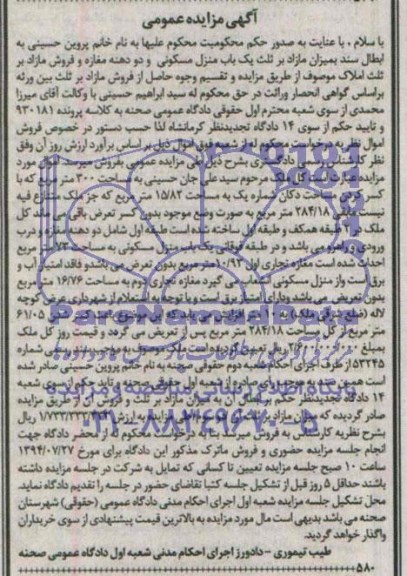 آگهی مزایده عمومی
با سلام ، با عنایت به صدور حکم محکومیت محکوم علیها به نام خانم پروین حسینی به
ابطال سند بمیزان مازاد بر ثلث یک باب منزل مسکونی و دو دهنه مغازه و فروش مازاد بر
ثلث املاک موصوف از طریق مزایده و تقسیم وجوه حاصل از فروش مازاد بر ثلث بین ورثه
براساس گواهی انحصار وراثت در حق محکوم له سید ابراهیم حسینی با وکالت آقای میرزا
محمدی از سوی شعبه محترم اول حقوقی دادگاه عمومی صحنه به کلاسه پرونده ۹۳۰۱۸۱
و تایید حکم از سوی ۱۴ دادگاه تجدیدنظر کرمانشاه لذا حسب دستور در خصوص فروش
اموال نظریه درخواست محکوم له از شعبه فوق اموال ذیل بر اساس برآورد ارزش روز آن وفق
نظر کارشناس رسمی دادگستری بشرح ذیل طی مزایده عمومی بفروش میرسد اموال مورد
مزایده عبارت است کل ملک مرحوم سید علی جان حسینی به مساحت ۳۰۰ متر مربع که با
کسر کردن مساحت دکان شماره یک به مساحت ۱۵/۸۲ متر مربع که جز ملک متنازع فیه
نیست مابقی ۲۸۴/۱۸ متر مربع به صورت وضع موجود بدون کسر تعرض باقی می ماند کل
ملک در ۲ طبقه همکف و طبقه اول ساخته شده است طبقه اول شامل دو دهنه مغازه و درب
ورودی و راهرو می باشد و در طبقه فوقانی یک باب منزل مسکونی به مساحت ۷۳ متر مربع
احداث شده است مغازه تجاری اول ۱۰/۹۲ متر مربع بدون تعرض می باشد و فاقد امتیاز آب و
برق است واز منزل مسکونی استفاده می گیرد مغازه تجاری دوم به مساحت ۱۶/۷۶ متر مربع
بدون تعریض می باشد ودارای امتیاز برق است و با توجه به استعلام از شهرداری عرض کوچه
لاله (ضلع شرقی ملک) به متر افزایش می یابد که این موضوع باعث کسر ۶۱/۰۵
متر مربع از کل مساحت ۲۸۴/۱۸ متر مربع پس از تعریض می گردد و قیمت روز کل ملک
بمبلغ ریال تعیین گردیده است ملک موصوف به موجب سند رسمی شماره
۵۳۳۴۵ از طرف اجرای احکام شعبه دوم حقوقی صحنه به نام خانم پروین حسینی صادر شده
است همچنین به موجب رای صادره از شعبه اول حقوقی صحنه و تاید حکم از سوی شعبه
۱۴ دادگاه تجدیدنظر حکم بر ابطال آن به میزان مازاد بر ثلث و فروش آن از طریق مزایده
صادر گردیده که میزان مازاد بر ثلث از طریق مزایده به ارزش ۱/۷۳۳/۳۳۳/۳۳۳ ریال
بشرح نظریه کارشناسی به فروش میرسد بنا به درخواست محکوم له از محضر دادگاه جهت
انجام جلسه مزایده حضوری و فروش ماترک مذکور این دادگاه برای مورخ ۱۳۹۴/۰۷/۲۷
ساعت ۱۰ صبح جلسه مزایده تعیین تا کسانی که تمایل به شرکت در جلسه مزایده داشته
باشند حداقل ۵ روز قبل از تشکیل جلسه کتبا تقاضای حضور در جلسه را تقدیم دادگاه نماید.
محل تشکیل جلسه مزایده شعبه اول اجرای احکام مدنی دادگاه عمومی (حقوقی) شهرستان
صحنه می باشد بدیهی است مال مورد مزایده به بالاترین قیمت پیشنهادی از سوی خریداران
واگذار خواهد گردید.
طیب تیموری - دادورز اجرای احکام مدنی شعبه اول دادگاه عمومی صحنه
۵۸۰
ParsNamadData
۰۲۱-۸۸۳۴۹۶۷۰-۵